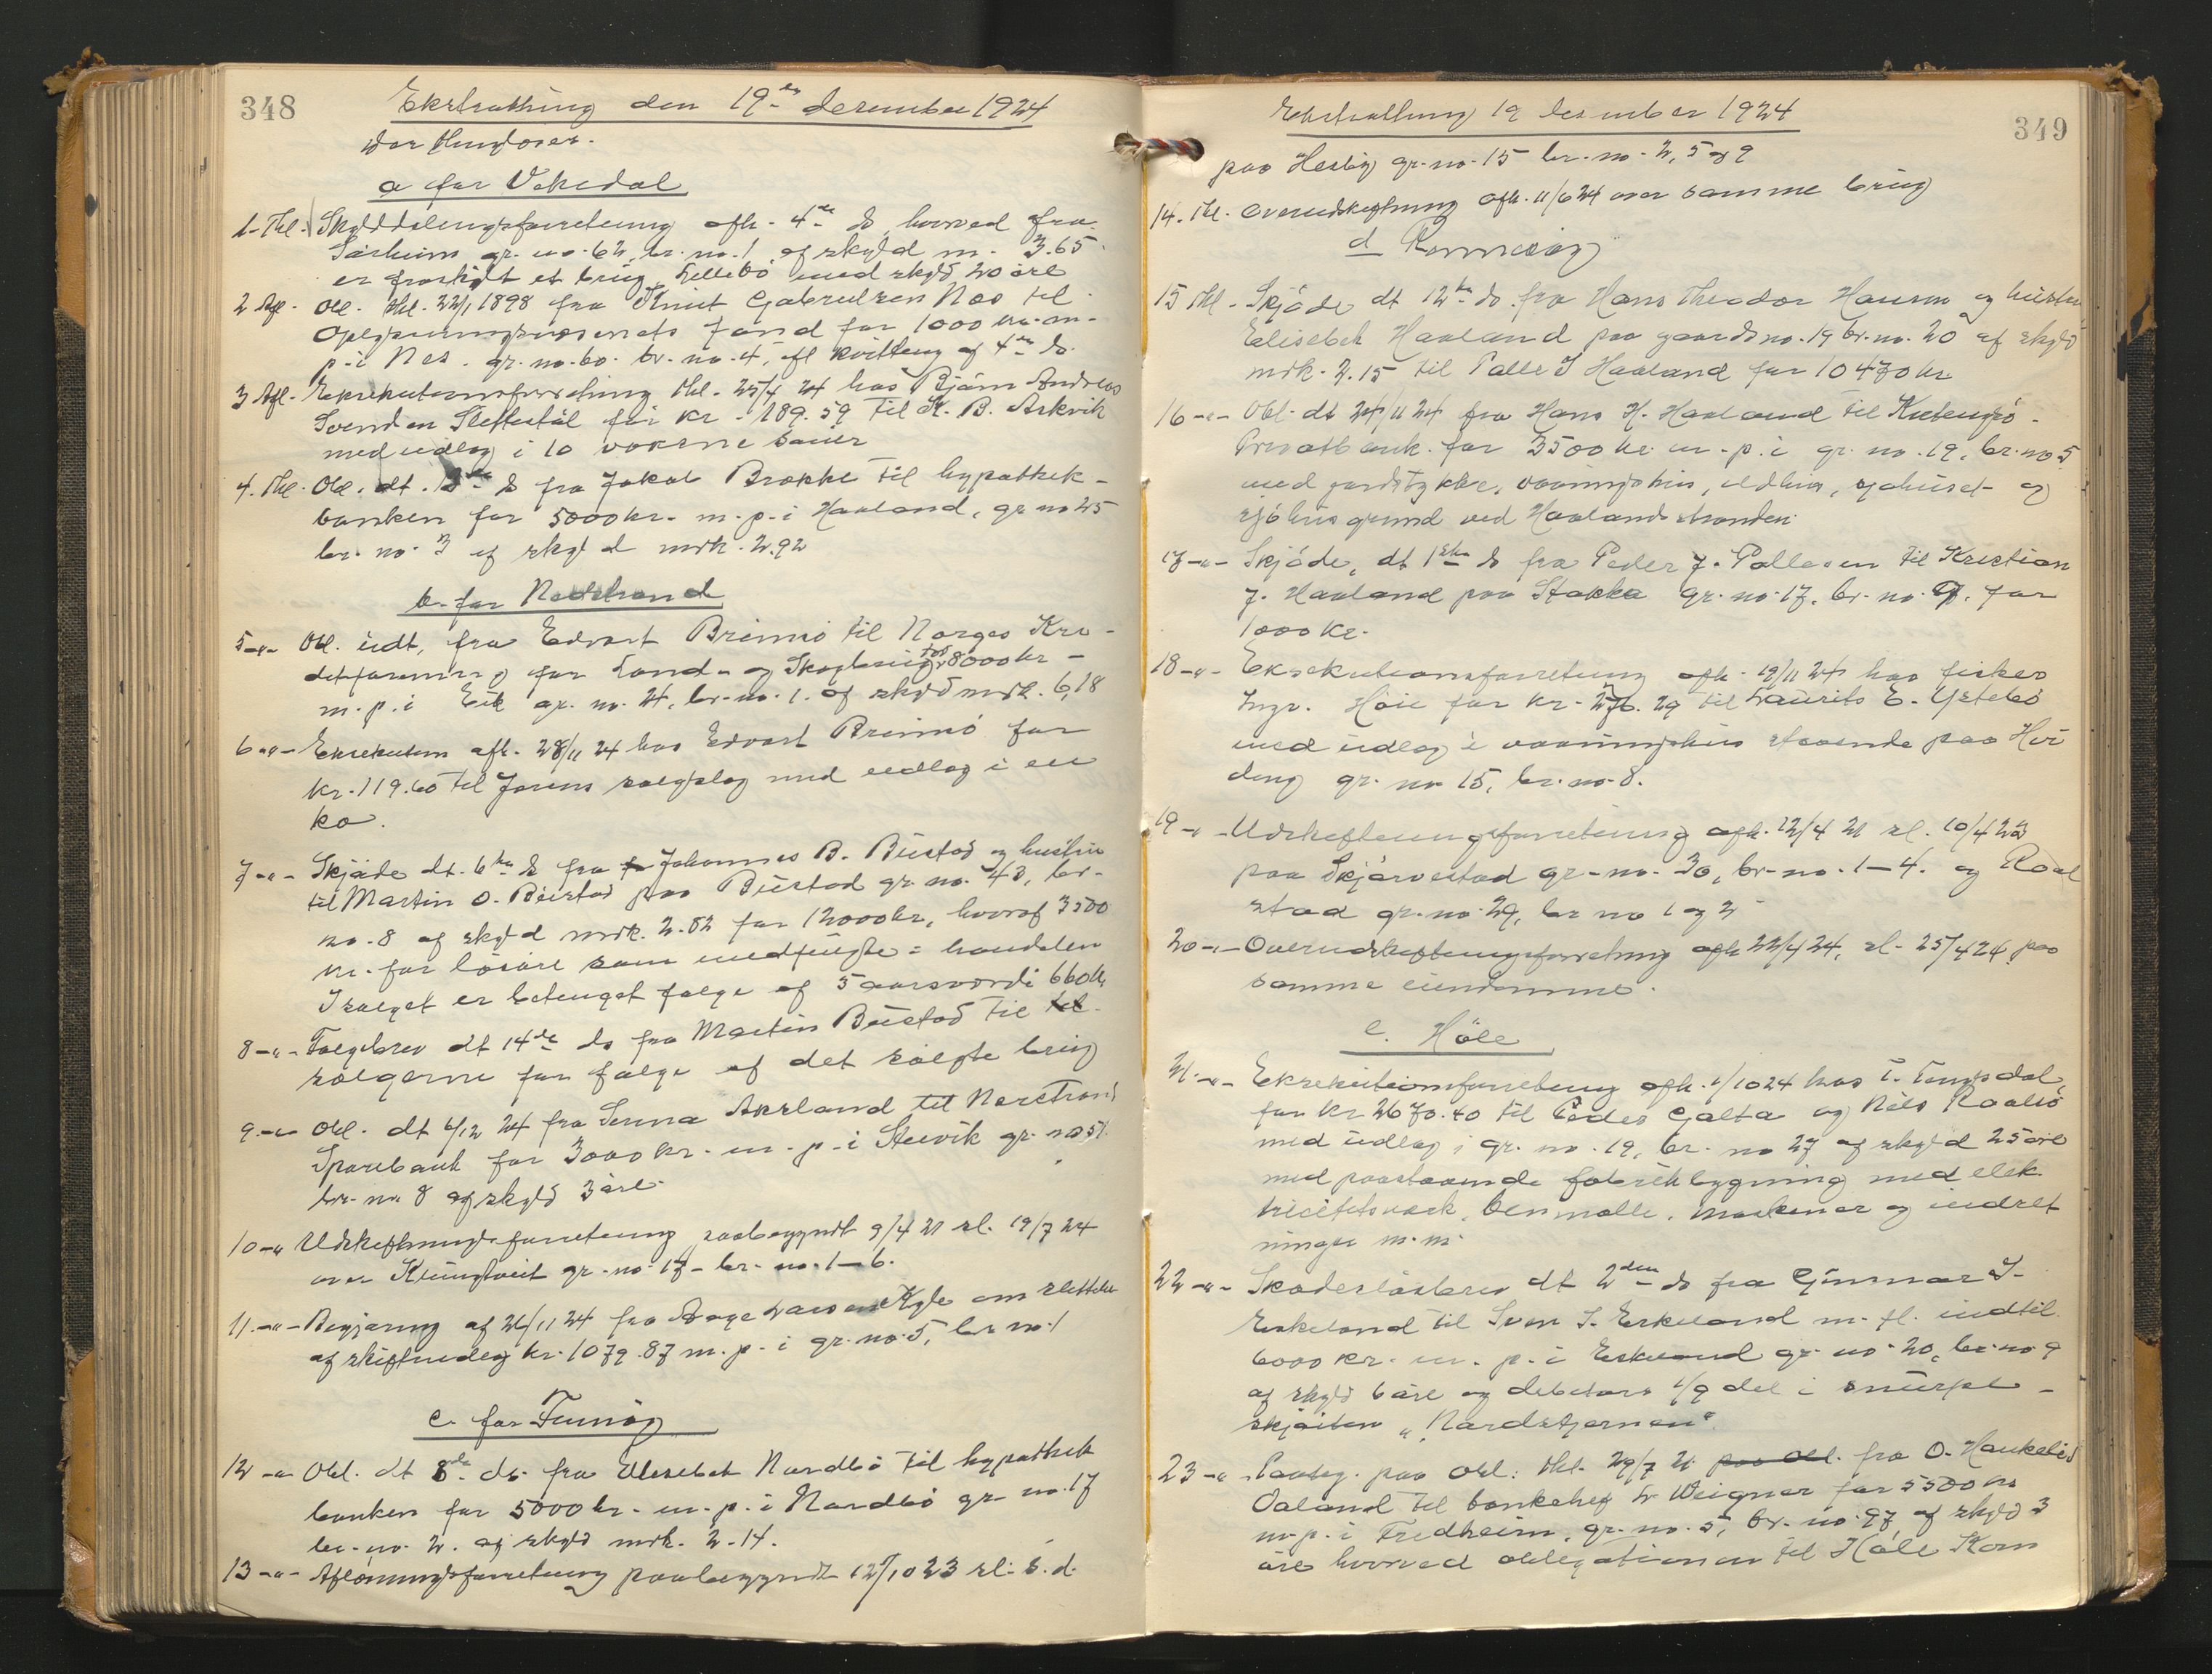 348
Ekstrathing den 19de desember 1924
a for Vikedal
1. Thl. Skylddelingsforretning afh. 4de ds hvorved fra
Sørheim gr. no. 62, br. no. 1 af skyld m. 3.65
er fraskilt et brug med skyld 20 øre
2 Afl. Obl. thl. 22/1 1898 fra Knut Gabrielsen Nes til
Oplysningsvæsenets fond for 1000 kr. m.
p. i Nes. gr. no. 60. br. no. 4, efl kvittering af 4de ds.
3 Afl. Eksekutionsforretning thl. 25/4 24 hos Bjørn Andreas
Svendsen Slettestøl for kr. 189.59 til K. B. Askvik
med udlæg i 10 voksne sauer
4. Thl. Obl. dt. ds fra Jakob Brekke til hypothek-
banken for 5000 kr. m. p. i Haaland, gr. no 25
br. no. 3 af skyld mrk. 2.92
b. for Nedstrand
5 -"- Obl. udt. fra Edvart Brimsø til Norges Kre-
ditforening for Land- og Skogbrug for 8000 kr
m. p. i Eik gr. no. 24, br. no. 1. af skyld mrk. 6,18
6 -"- Eksekution afh. 28/11 24 hos Edvart Brimsø for
kr. 119.60 til Jorens salgslag med udlæg i en
ko.
7 -"- Skjøde dt. 6te ds fra Johannes B. Bustad og hustru
til Martin O. Bustad paa Bustad gr. no. 43, br.
no. 8 af skyld mrk. 2.82 for 12000 kr, hvoraf 3500
kr. for løsøre som medfulgte handelen
I salget er betinget følge af 5 aarsværdi 660 kr
8 -"- Følgebrev dt 14de ds fra Martin Bustad til
sælgerne for følge af det solgte brug
9 -"- Obl. dt 6/12 24 fra Serina Aksland til Nerstrand
Sparebank for 3000 kr. m. p. i Stuvik gr. no 51.
br. no 8 af skyld 3 øre.
10 -" Udskiftningsforretning paabegyndt 9/4 21 sl. 19/7 24
over Krungtveit gr. no. 17 - br. no. 1-6.
11 -"- Begjæring af 26/11 24 fra Aage Larsen om slettelse
af skifteudlæg kr. 1079.87 m. p. i gr. no. 5, br no. 1
c. for Finnøy
12 -"- Obl. dt 8de ds. fra Elisebet Nordbø til hypothek
banken for 5000 kr. m. p. i Nordbø gr no. 17
br. no. 2. af skyld mrk. 2.14.
13 -"- Afløsningsforretning paabegyndt 12/10 23 sl. s. d.
349
Ekstrathing 19 desember 1924
paa Hesby gr. no. 15 br. no. 2, 5 og 9
14. Thl. Overudskiftning afh. 11/6 24 over samme brug
d Rennesøy
15 Thl - Skjøde dt 12te ds. fra Hans Theodor Hansen og hustru
Elisebet Haaland paa gaardsno. 19 br. no. 20 af skyld
mrk. 2.15 til Palle J Haaland for 10470 kr
16 -"- Obl. dt 24/11 24 fra Hans H. Haaland til Kvitingsø
Privatbank for 3500 kr. m. p. i gr. no. 19, br. no 5
med jordstykke, vaaningshus, eldhus, sjøhuset og
sjøhusgrund ved Haalandsstranden
17 -"- Skjøde, dt 1ste ds fra Peder J. Pallesen til Kristian
J. Haaland paa Stokka gr. no. 17, br. no. 9, for
1000 kr.
18 -"- Eksekutionsforretning afh. 19/11 24 hos fisker
Ingv. Høie for kr. 276.29 til Laurits E. Ystebø
med udlæg i vaaningshus staaende paa Hvi
ding gr. no 15, br. no. 8.
19 -"- Udskiftningsforretning afh. 12/4 21 sl. 10/4 23
paa Skjørvestad gr. no. 30, br. no. 1-4. og Roal
stad gr. no. 29, br no 1 og 2
20 -"- Overudskiftningsforretning afh 22/4 24, sl. 25/4 24 paa
samme eiendomme.
e. Høle
21. -"- Eksekutionsforretning afh. 1/10 24 hos T. Tengsdal,
for kr 2670.40 til Peder Galta og Nils Raabø
med udlæg i gr. no. 19, br. no 27 af skyld 25 øre
med paastaaende fabrikbygning med elek
tricitetsverk, benmølle, maskiner og indret
ninger m. m.
22 -"- Skadesløsbrev dt 2den ds fra Gunnar S.
Eskeland til Sven S. Eskeland m. fl. indtil
6000 kr. m. p. i Eskeland gr. no. 20, br. no 9
af skyld 6 øre og debitors 1/9 del i snurpe-
skøiten "Nordstjernen"
23 -"- Paateg. paa obl. thl. 29/7 21 paa obl. fra O. Haukelid
Oaland til bankchef Weigner for 5500 kr
m. p. i Fredheim, gr. no. 5, br. no. 97 af skyld 3
øre hvorved obligationen til Høle Kom